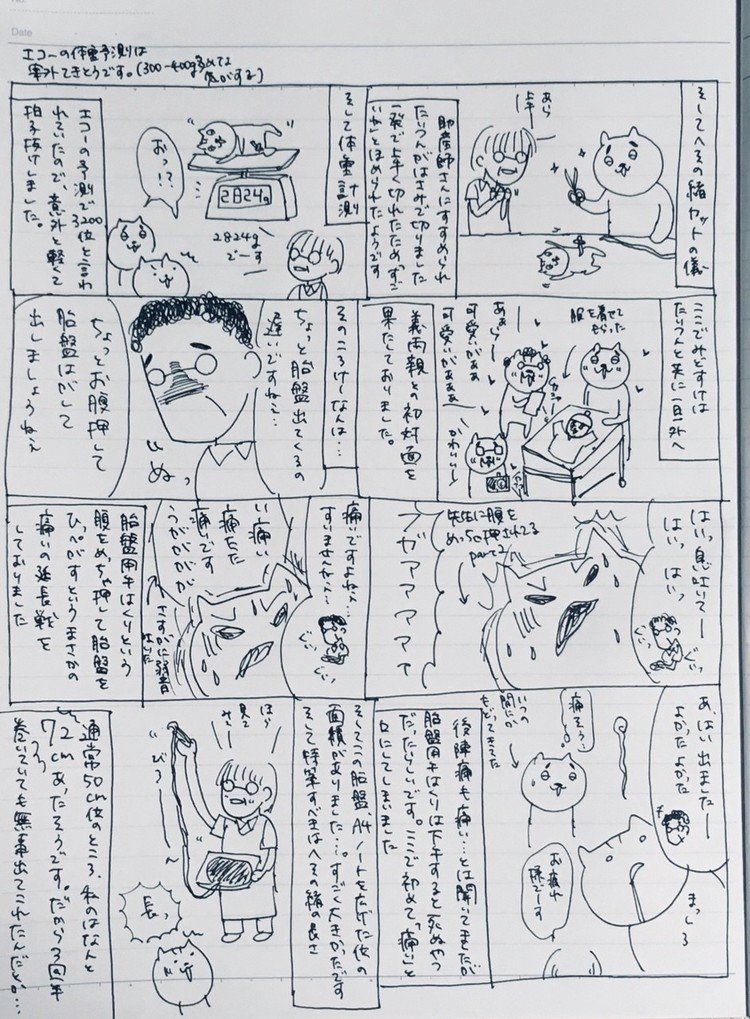 Date
エコーの体重予測は
案外てきとうです。(300~400g多めてな
気がする)
そしてへその緒カットの儀
あら
上手
助産師さんにすすめられ
たいつんがはさみで切りました
一発で上手く切れたため「すご
いわ」とほめられたようです
そして体重計測
おっ!?
2824g
2824g
でーす
エコーの予測で3200位と言わ
れていたので、意外と軽くて
拍子抜けしました。
ここでみとすけは
たいつんと共に一旦外へ
服を着せて
もらった
あぁら〜
可愛いがぁぁ
可愛いがぁぁぁ
カシャー
かわいいー
義両親との初対面を
果たしておりました。
そのころけいなんは…
ちょっと胎盤出てくるの
遅いですねぇ…
ぬっ
ちょっとお腹押して
胎盤はがして
出しましょうねぇ
はい、息吐いてー
はいっ はいっ
ぐいっ
先生に腹を
めっちゃ押されてる
part2
アガァァァァァ
痛いですよねぇ…
すいませんねぇ…
ぐい
い痛い
痛ぢだ
痛いです
うがががが
さすがに弱音
はいた
胎盤用手はくりという
腹をめちゃ押して胎盤を
ひっぺがすというまさかの
痛いの延長戦を
しておりました
あ、はい出ましたー
よかったよかった
まっしろ
お疲れ
様でーす
痛そう…
いつの
間にか
もどってきてた
後陣痛も痛い…とは聞いてましたが
胎盤用手はくりは下手すると死ぬやつ
だったらしいです。ここで初めて「痛い」と
口にしてしまいました
そしてこの胎盤、A4ノートを広げた位の
面積がありました…。すごく大きかったです
そして特筆すべきはへその緒の長さ
ほら
見て
みー
びろーん
長っ
通常50cm位のところ、私のはなんと
72cmあったそうです。だから3回半
巻いていても無事出てこれたんだとか…